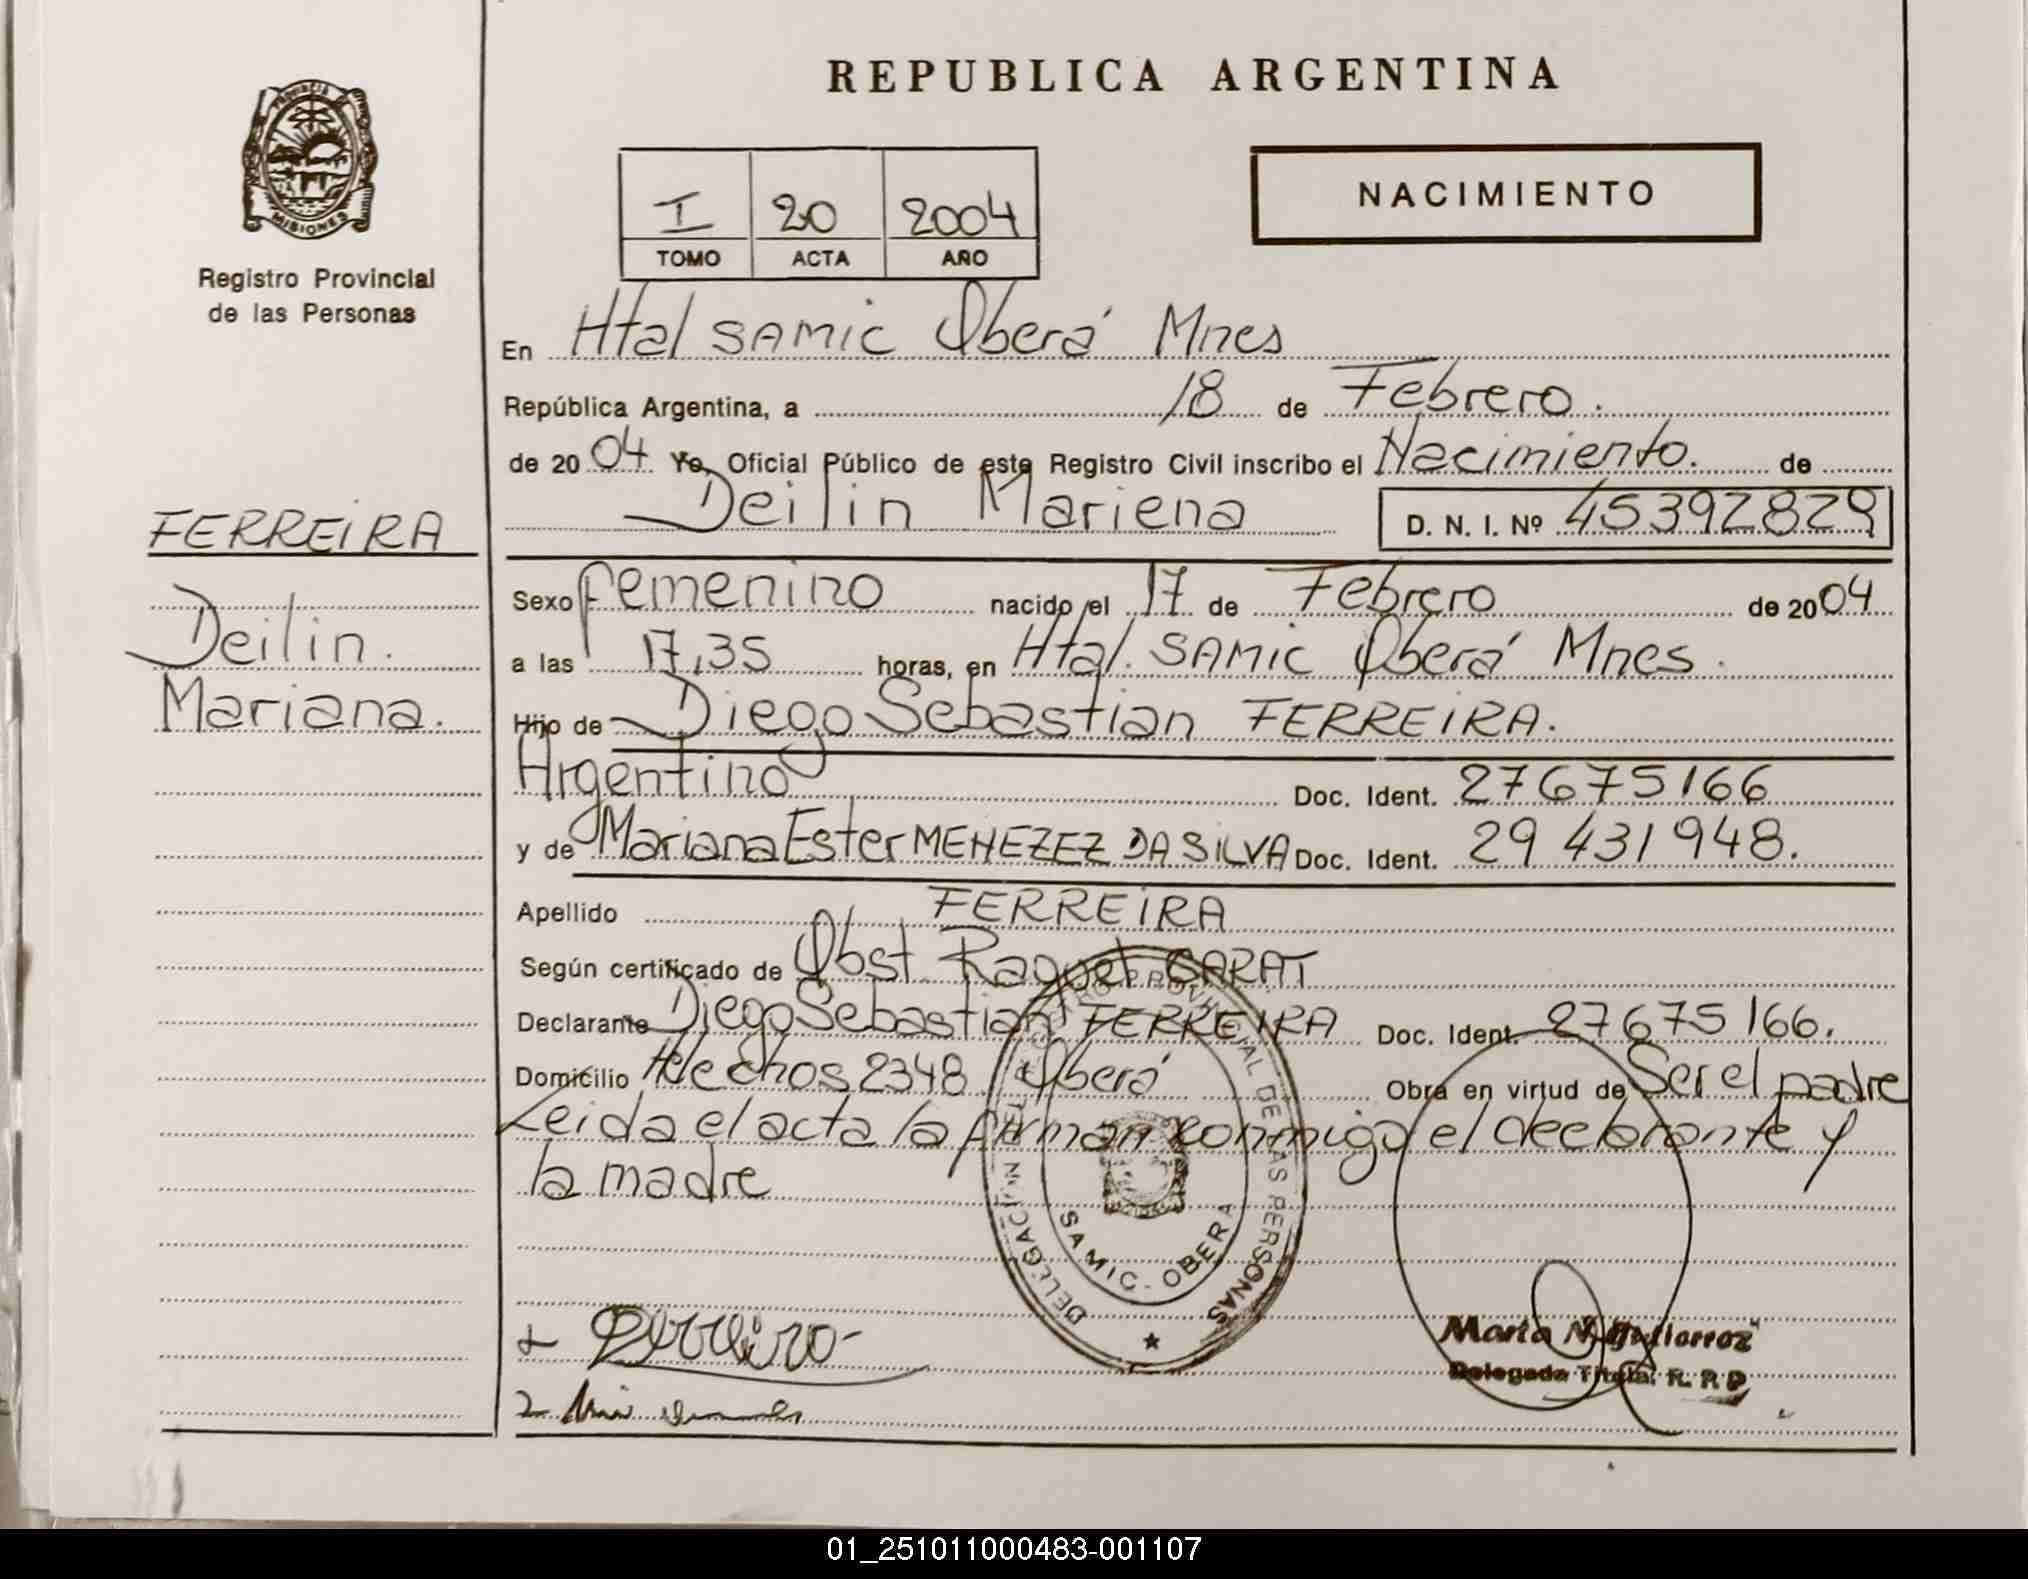 REPUBLICA ARGENTINA
PROVINCIA DE
MISIONES
Registro Provincial
de las Personas
I 20 2004
TOMO ACTA AÑO
NACIMIENTO
En Htal SAMIC Oberá Mnes
República Argentina, a 18 de Febrero.
de 2004 Yo, Oficial Público de este Registro Civil inscribo el Nacimiento. de
Deilin Mariena D. N. I. Nº 45392829
FERREIRA
Deilin.
Mariana.
Sexo femenino nacido el 17 de Febrero de 2004
a las 17,35 horas, en Htal. SAMIC Oberá Mnes.
Hijo de Diego Sebastian FERREIRA.
Argentino Doc. Ident. 27675166
y de Mariana Ester MENEZEZ DA SILVA Doc. Ident. 29 431 948.
Apellido FERREIRA
Según certificado de Obst. Raquel GARAT
Declarante Diego Sebastian FERREIRA Doc. Ident. 27675166.
Domicilio Helechos 2348 Oberá Obra en virtud de Ser el padre
Leida el acta la firman conmigo el declarante y
la madre
REGISTRO PROVINCIAL DE LAS PERSONAS
DELEGACION
SAMIC - OBERA
Maria N. Gutierrez
Delegada Titular R. P. P
01_251011000483-001107